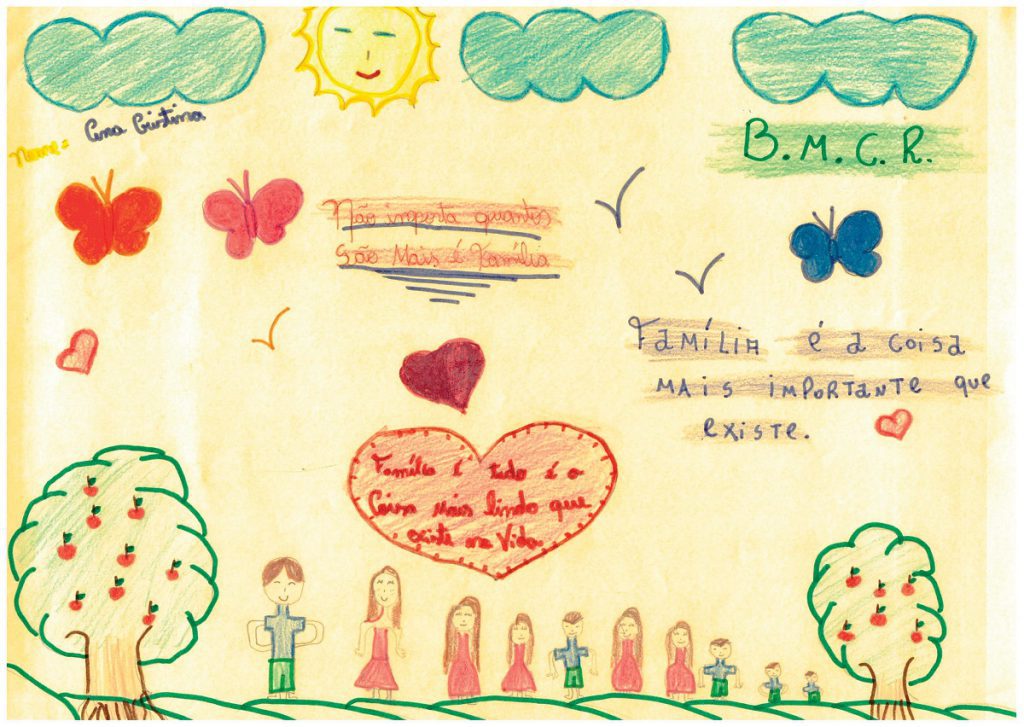 Nome= Ana Cristina
B.M.C.R.
Não importa quantos
São Mais é Família
FaMÍLIA é a coisa
MAIS IMPORTANTE que
existe.
Família é tudo é a
Coisa Mais linda que
existe na Vida.